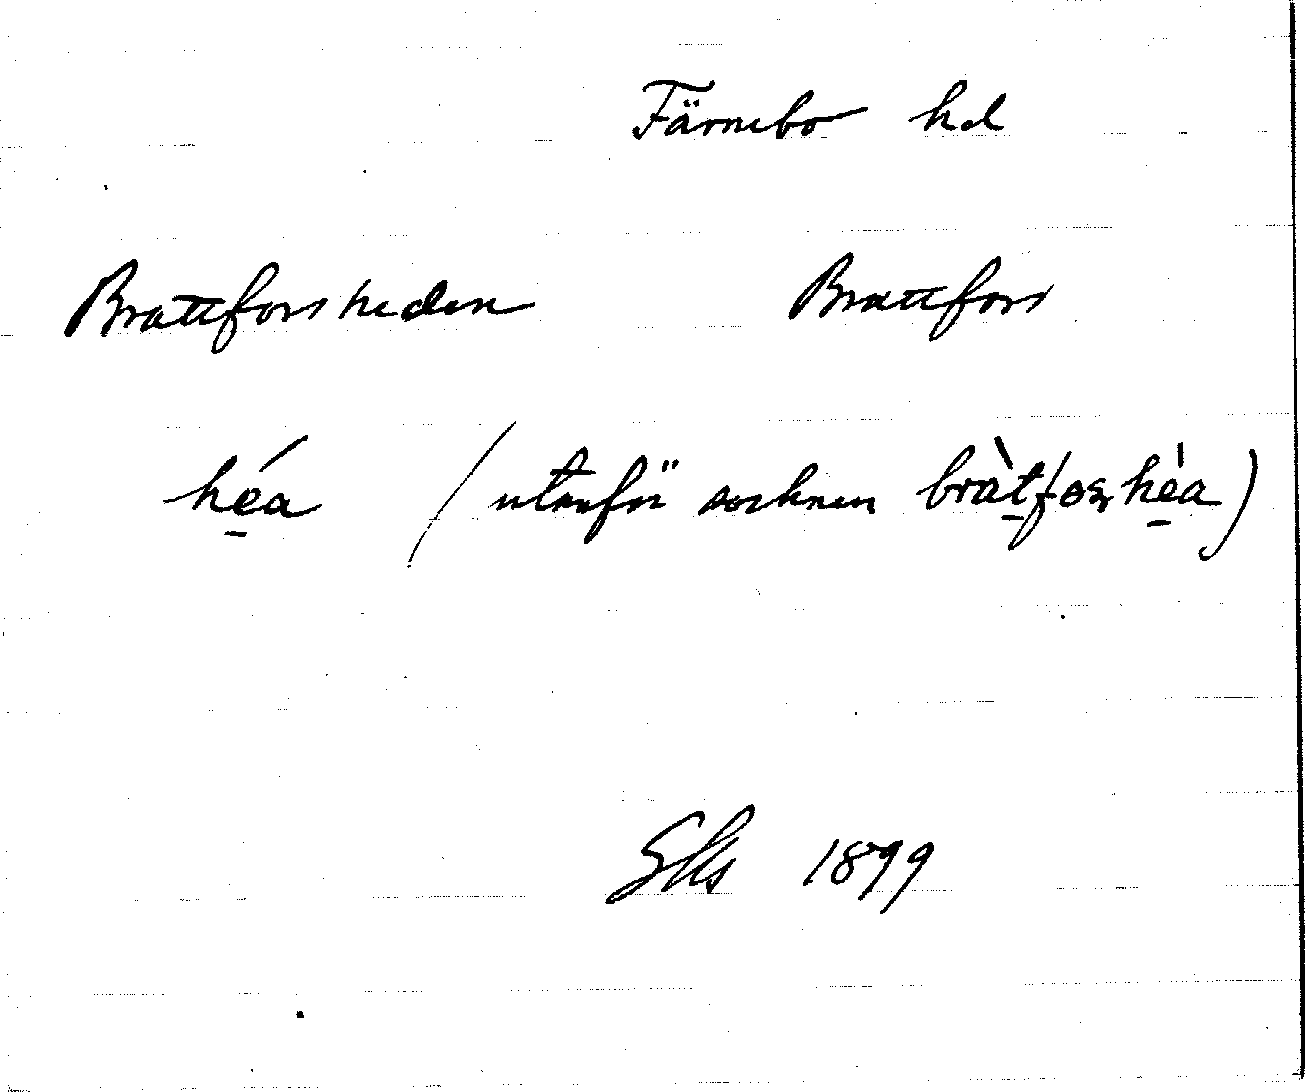 Färnebo hd
Brattforsheden Brattfors
hé̱a (utanför socknen bràt̲foshè̱a)
1899